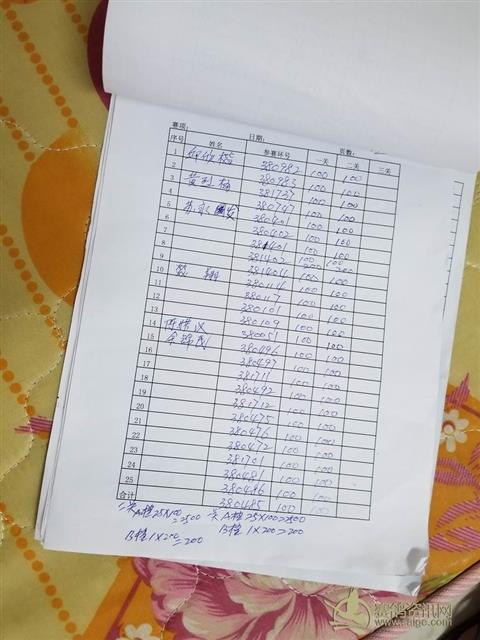 赛项： 日期： 页数：
序号 姓名 参赛环号 一关 二关 三关
1 380982 100 100
2 380983 100 100
3 黄利梅 381737 100 100
4 380747 100 100
5 380401 100 100
6 380402 100 100
7 381401 100 100
8 381402 100 100
9 200 200
10 翔 380114 100 100
11 380117 100 100
12 380101 100 100
13 380109 100 100
14 380051 100 100
15 380496 100 100
16 380497 100 100
17 100 100
18 380492 100 100
19 381712 100 100
20 380475 100 100
21 380476 100 100
22 380472 100 100
23 381701 100 100
24 380481 100 100
25 380486 100 100
合计 380485 100 100
一关A档25×100=2500 关A档25×100=2500
B档1×200=200 B档1×200=200
赛鸽资讯网
www.saige.com